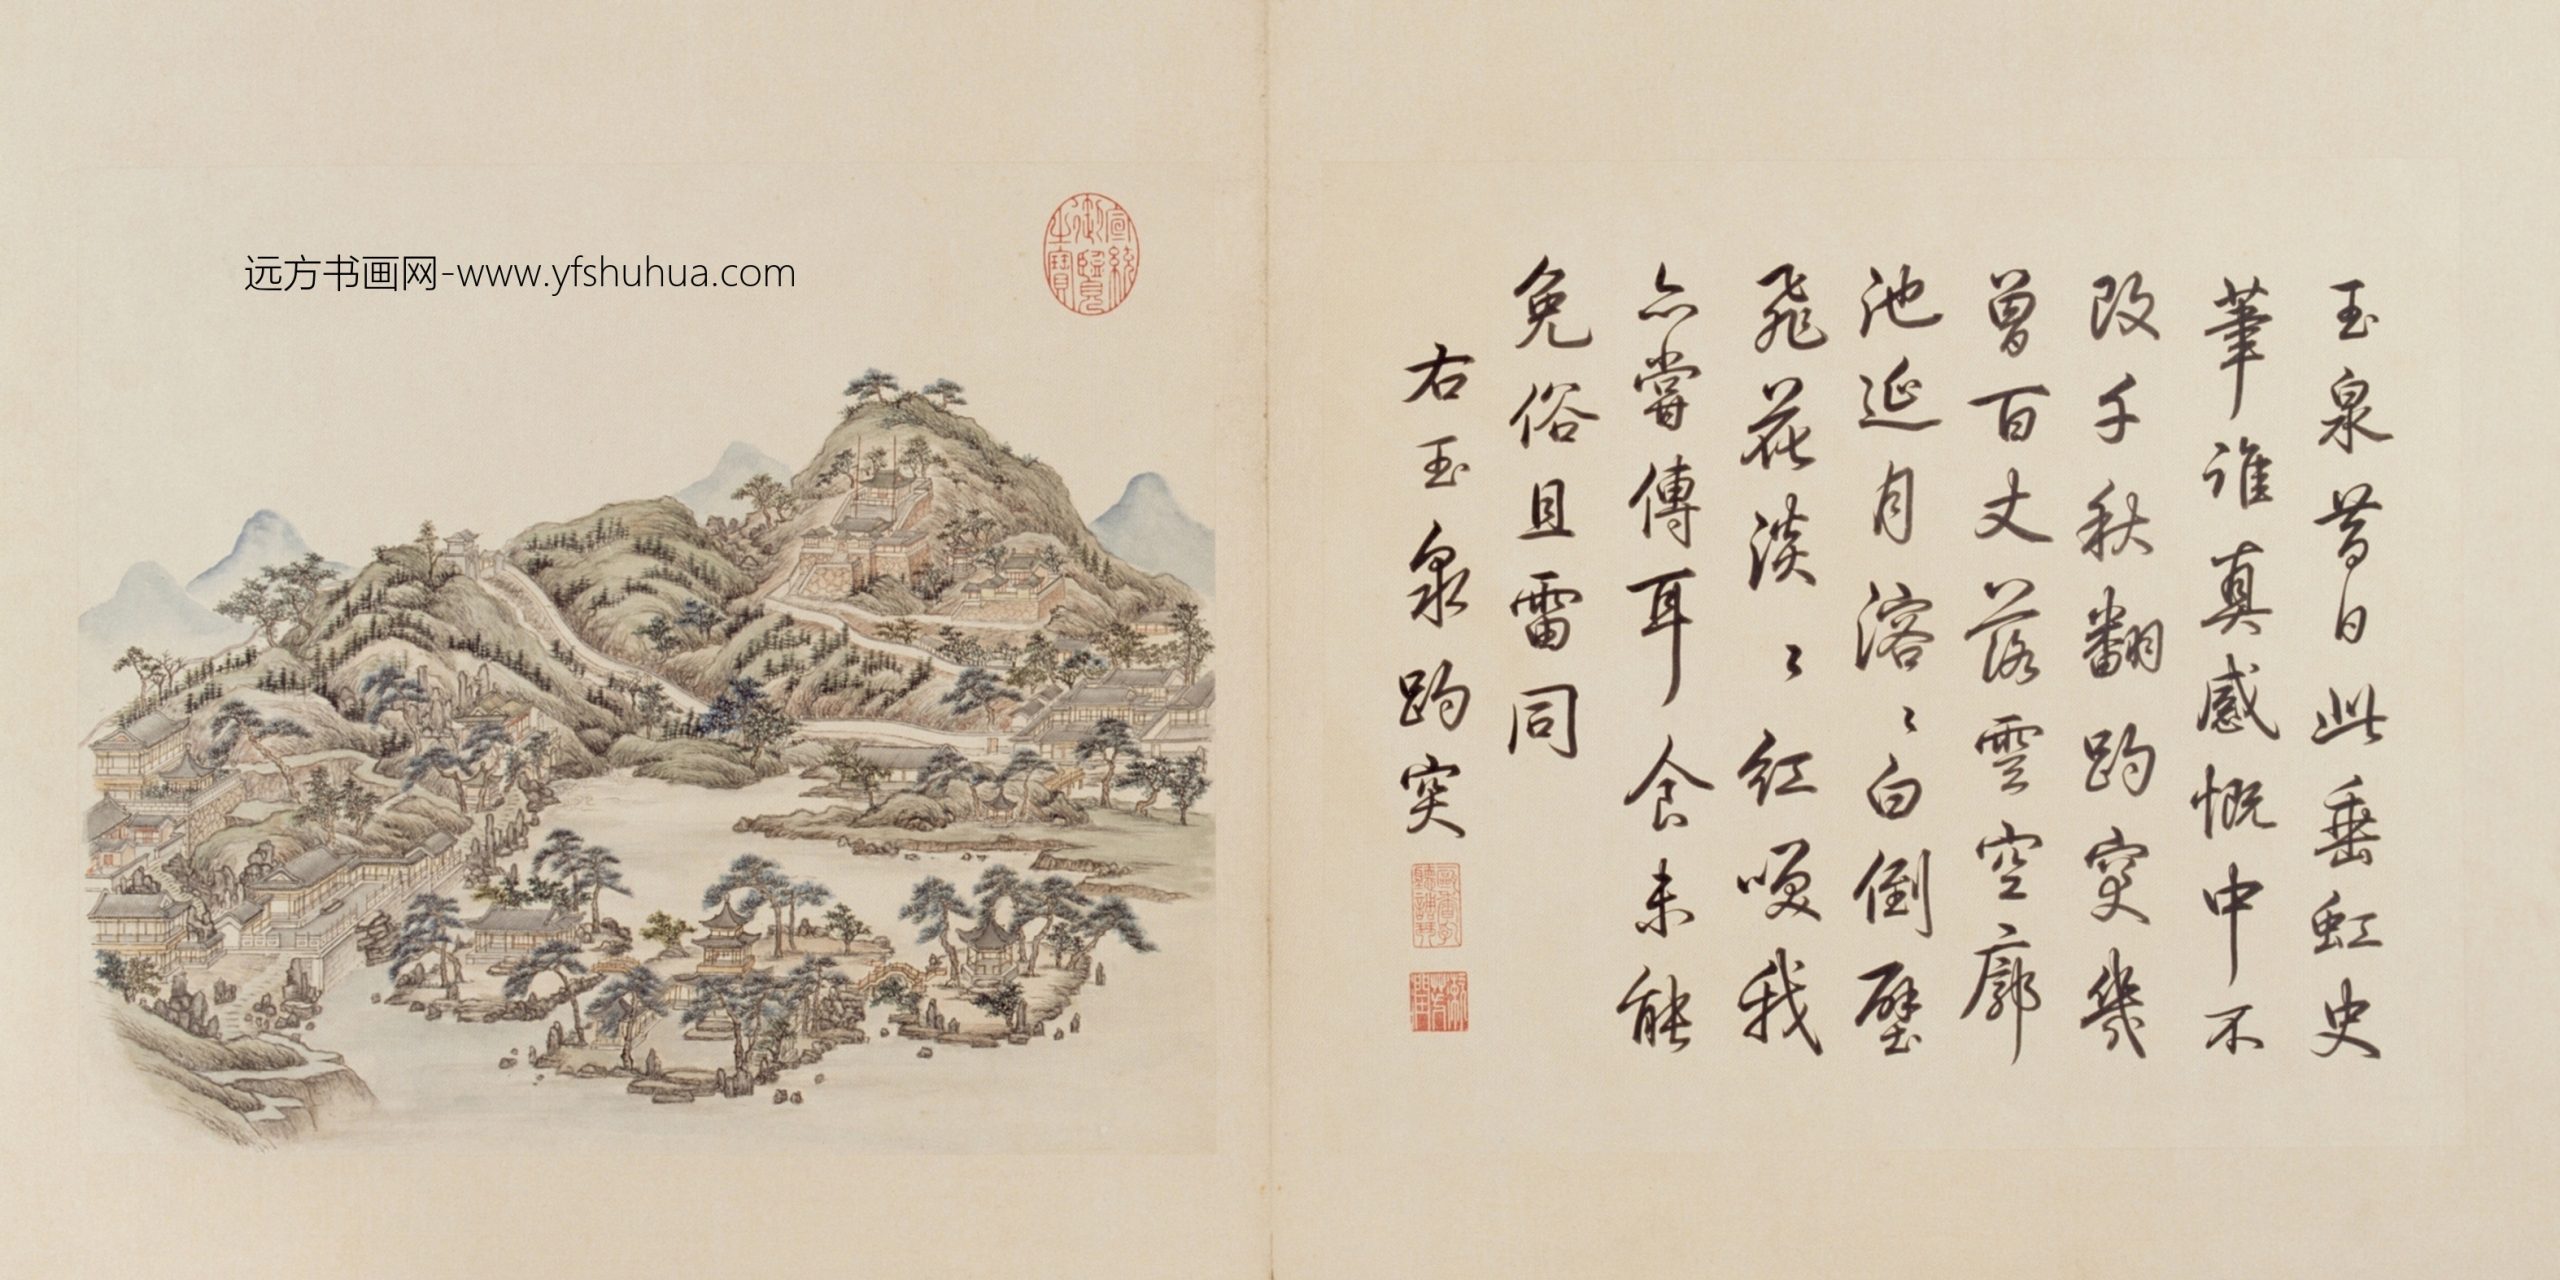 远方书画网-www.yfshuhua.com
玉泉昔日此垂虹史
筆誰真感慨中不
改千秋翻趵突幾
曾百丈落雲空廓
池延月溶〻白倒壁
飛花淡〻紅咲我
亦嘗傳耳食未能
免俗且雷同
右玉泉趵突
宣統
御覽
之寶